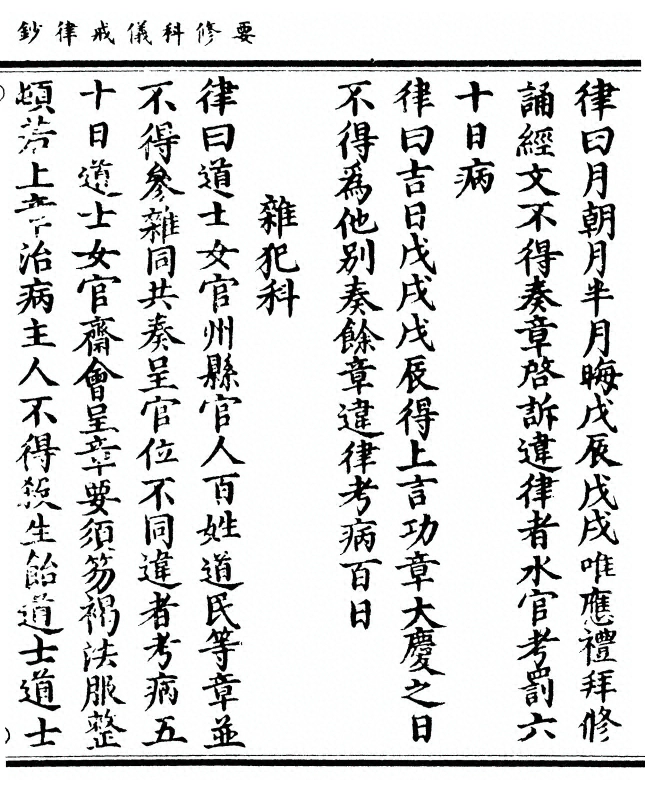 要修科儀戒律鈔
律曰月朝月半月晦戊辰戊戌唯應禮拜修
誦經文不得奏章啓訴違律者水官考罰六
十日病
律曰吉日戊戌戊辰得上言功章大慶之日
不得爲他別奏餘章違律考病百日
雜犯科
律曰道士女官州縣官人百姓道民等章並
不得參雜同共奏呈官位不同違者考病五
十日道士女官齋會呈章要須笏褐法服整
頓若上章治病主人不得殺生飴道士道士